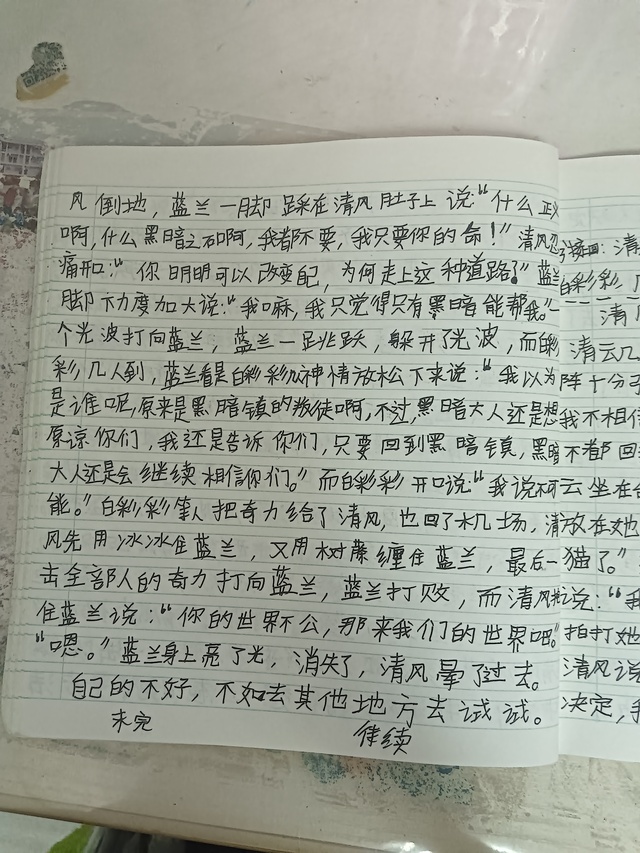 风倒地，蓝兰一脚踩在清风肚子上说：“什么正义
啊，什么黑暗之石啊，我都不要，我只要你的命！”清风忍
痛开口：“你明明可以改变自己，为何走上这种道路？”蓝兰
脚下力度加大说：“我嘛，我只觉得只有黑暗能帮我。”一
个光波打向蓝兰，蓝兰一跳跃，躲开了光波，而白彩
彩几人到，蓝兰看是白彩彩几神情放松下来说：“我以为
是谁呢，原来是黑暗镇的叛徒啊，不过，黑暗大人还是想
原谅你们，我还是告诉你们，只要回到黑暗镇，黑暗
大人还是会继续相信你们。”而白彩彩开口说：“我说不可
能。”白彩彩等人把奇力给了清风，也回了机场，清
风先用冰冰住蓝兰，又用树藤缠住蓝兰，最后一
击全部人的奇力打向蓝兰，蓝兰打败，而清风
住蓝兰说：“你的世界不公，那来我们的世界吧。”
“嗯。”蓝兰身上亮了光，消失了，清风晕了过去。
自己的不好，不如去其他地方去试试。
未完 继续
清
白彩彩，几
清风
清云几
阵十分子
我不相信
不都回
云坐在
放在她
猫了。”
说：“我
拍打她
清风说
决定，我